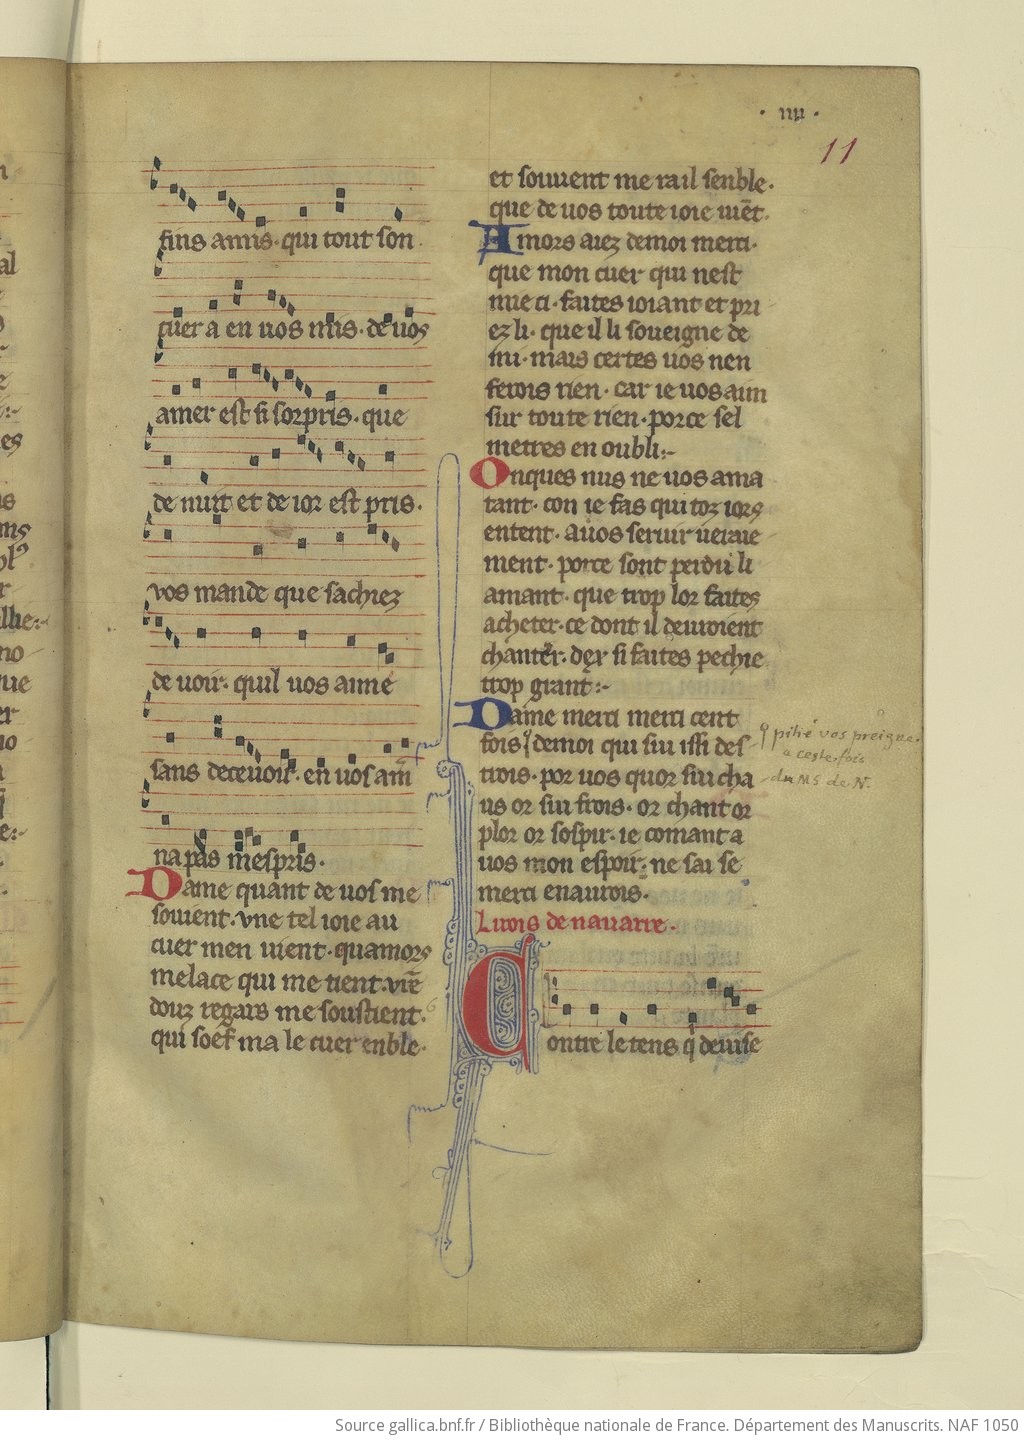 · iiii ·
11
fins amis· qui tout son
cuer a en uos mis· de uos
amer est si sorpris· que
de nuit et de ior est pris·
vos mande que sachiez
de uoir· quil uos aime
sans deceuoir· en uos am̄
na pas mespris·
Dame quant de uos me
souient· vne tel ioie au
cuer men uient· quamors
me lace qui me tient·
douz regars me soustient·
qui soef ma le cuer enble·
et souuent me ra il senble·
que de uos toute ioie uiēt·
Amors aiez de moi merci·
que mon cuer qui nest
mie ci· faites ioiant et pri
ez li· que il li soueigne de
mi· mais certes uos nen
ferois rien· car ie uos aim
sur toute rien· por ce sel
metres en oubli:-
Onques nus ne uos ama
tant· con ie fas qui toz iors
entent· a uos seruir ueraie
ment· por ce sont perdu li
amant· que trop lor faites
acheter· ce dont il deuroient
chanter· der si faites pechie
trop grant:-
Dame merci merci cent
fois de moi qui sui issi des
trois· por uos quor sui cha
us or sui frois· or chant or
plor or sospir· ie comant a
uos mon espoir· ne sai se
merci en aurois·
q pitié vos preigne
a ceste fois
du MS de N.
Li rois de nauarre·
Contre le tens q̇ deuise
Source gallica.bnf.fr / Bibliothèque nationale de France. Département des Manuscrits. NAF 1050